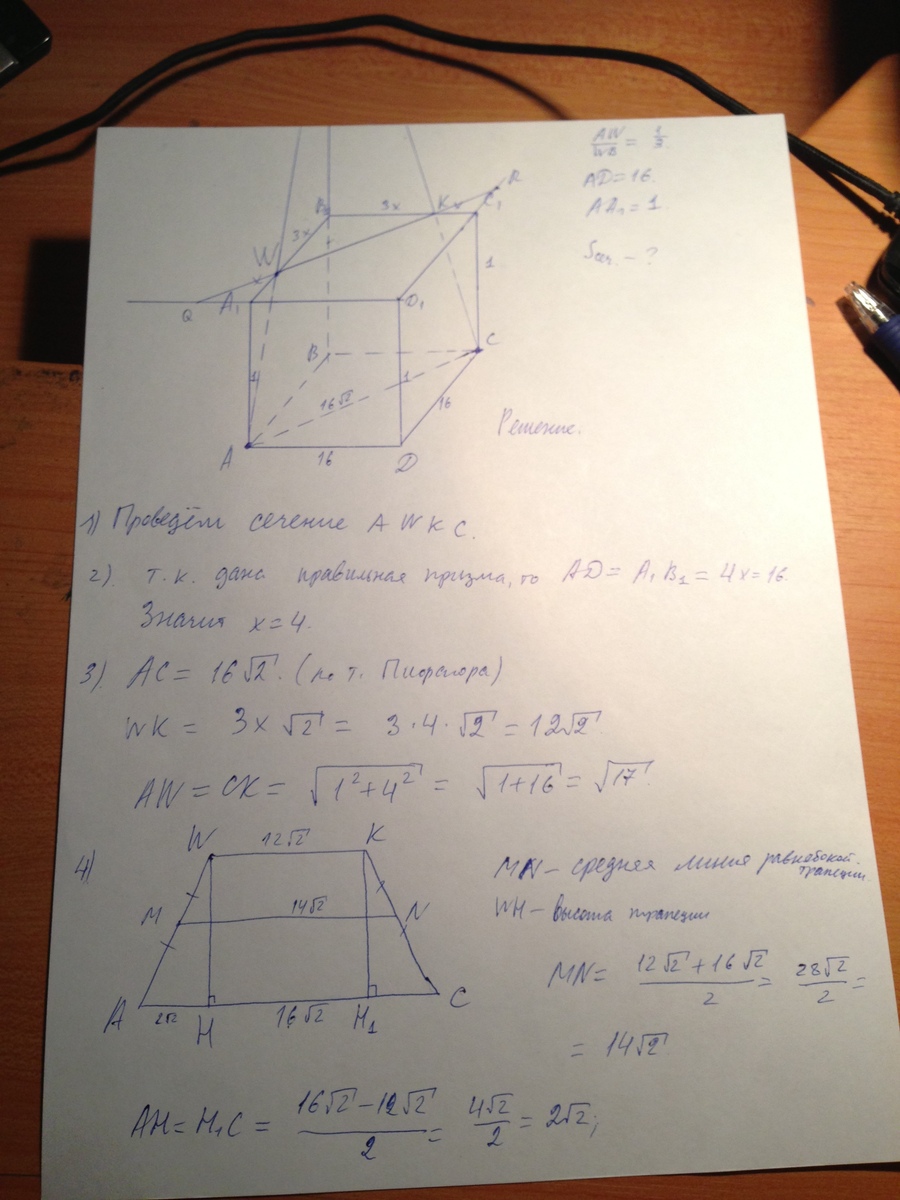 AW/WB = 1/3.
AD=16.
AA₁=1.
Sсеч. - ?
B₁ 3x K x C₁ R
3x
W
x
Q A₁ D₁
1
B C
1 1
16√2 16
A 16 D
Решение.
1) Проведём сечение AWKC.
2). т.к. дана правильная призма, то AD = A₁B₁ = 4x=16.
Значит x=4.
3). AC = 16√2. (по т. Пифагора)
WK = 3x√2 = 3·4·√2 = 12√2
AW = CK = √(1²+4²) = √(1+16) = √17.
4)
W 12√2 K
M 14√2 N
A 2√2 H 16√2 H₁ C
MN – средняя линия равнобокой трапеции.
WH – высота трапеции
MN = (12√2+16√2)/2 = 28√2/2 =
= 14√2
AH = H₁C = (16√2–12√2)/2 = 4√2/2 = 2√2;